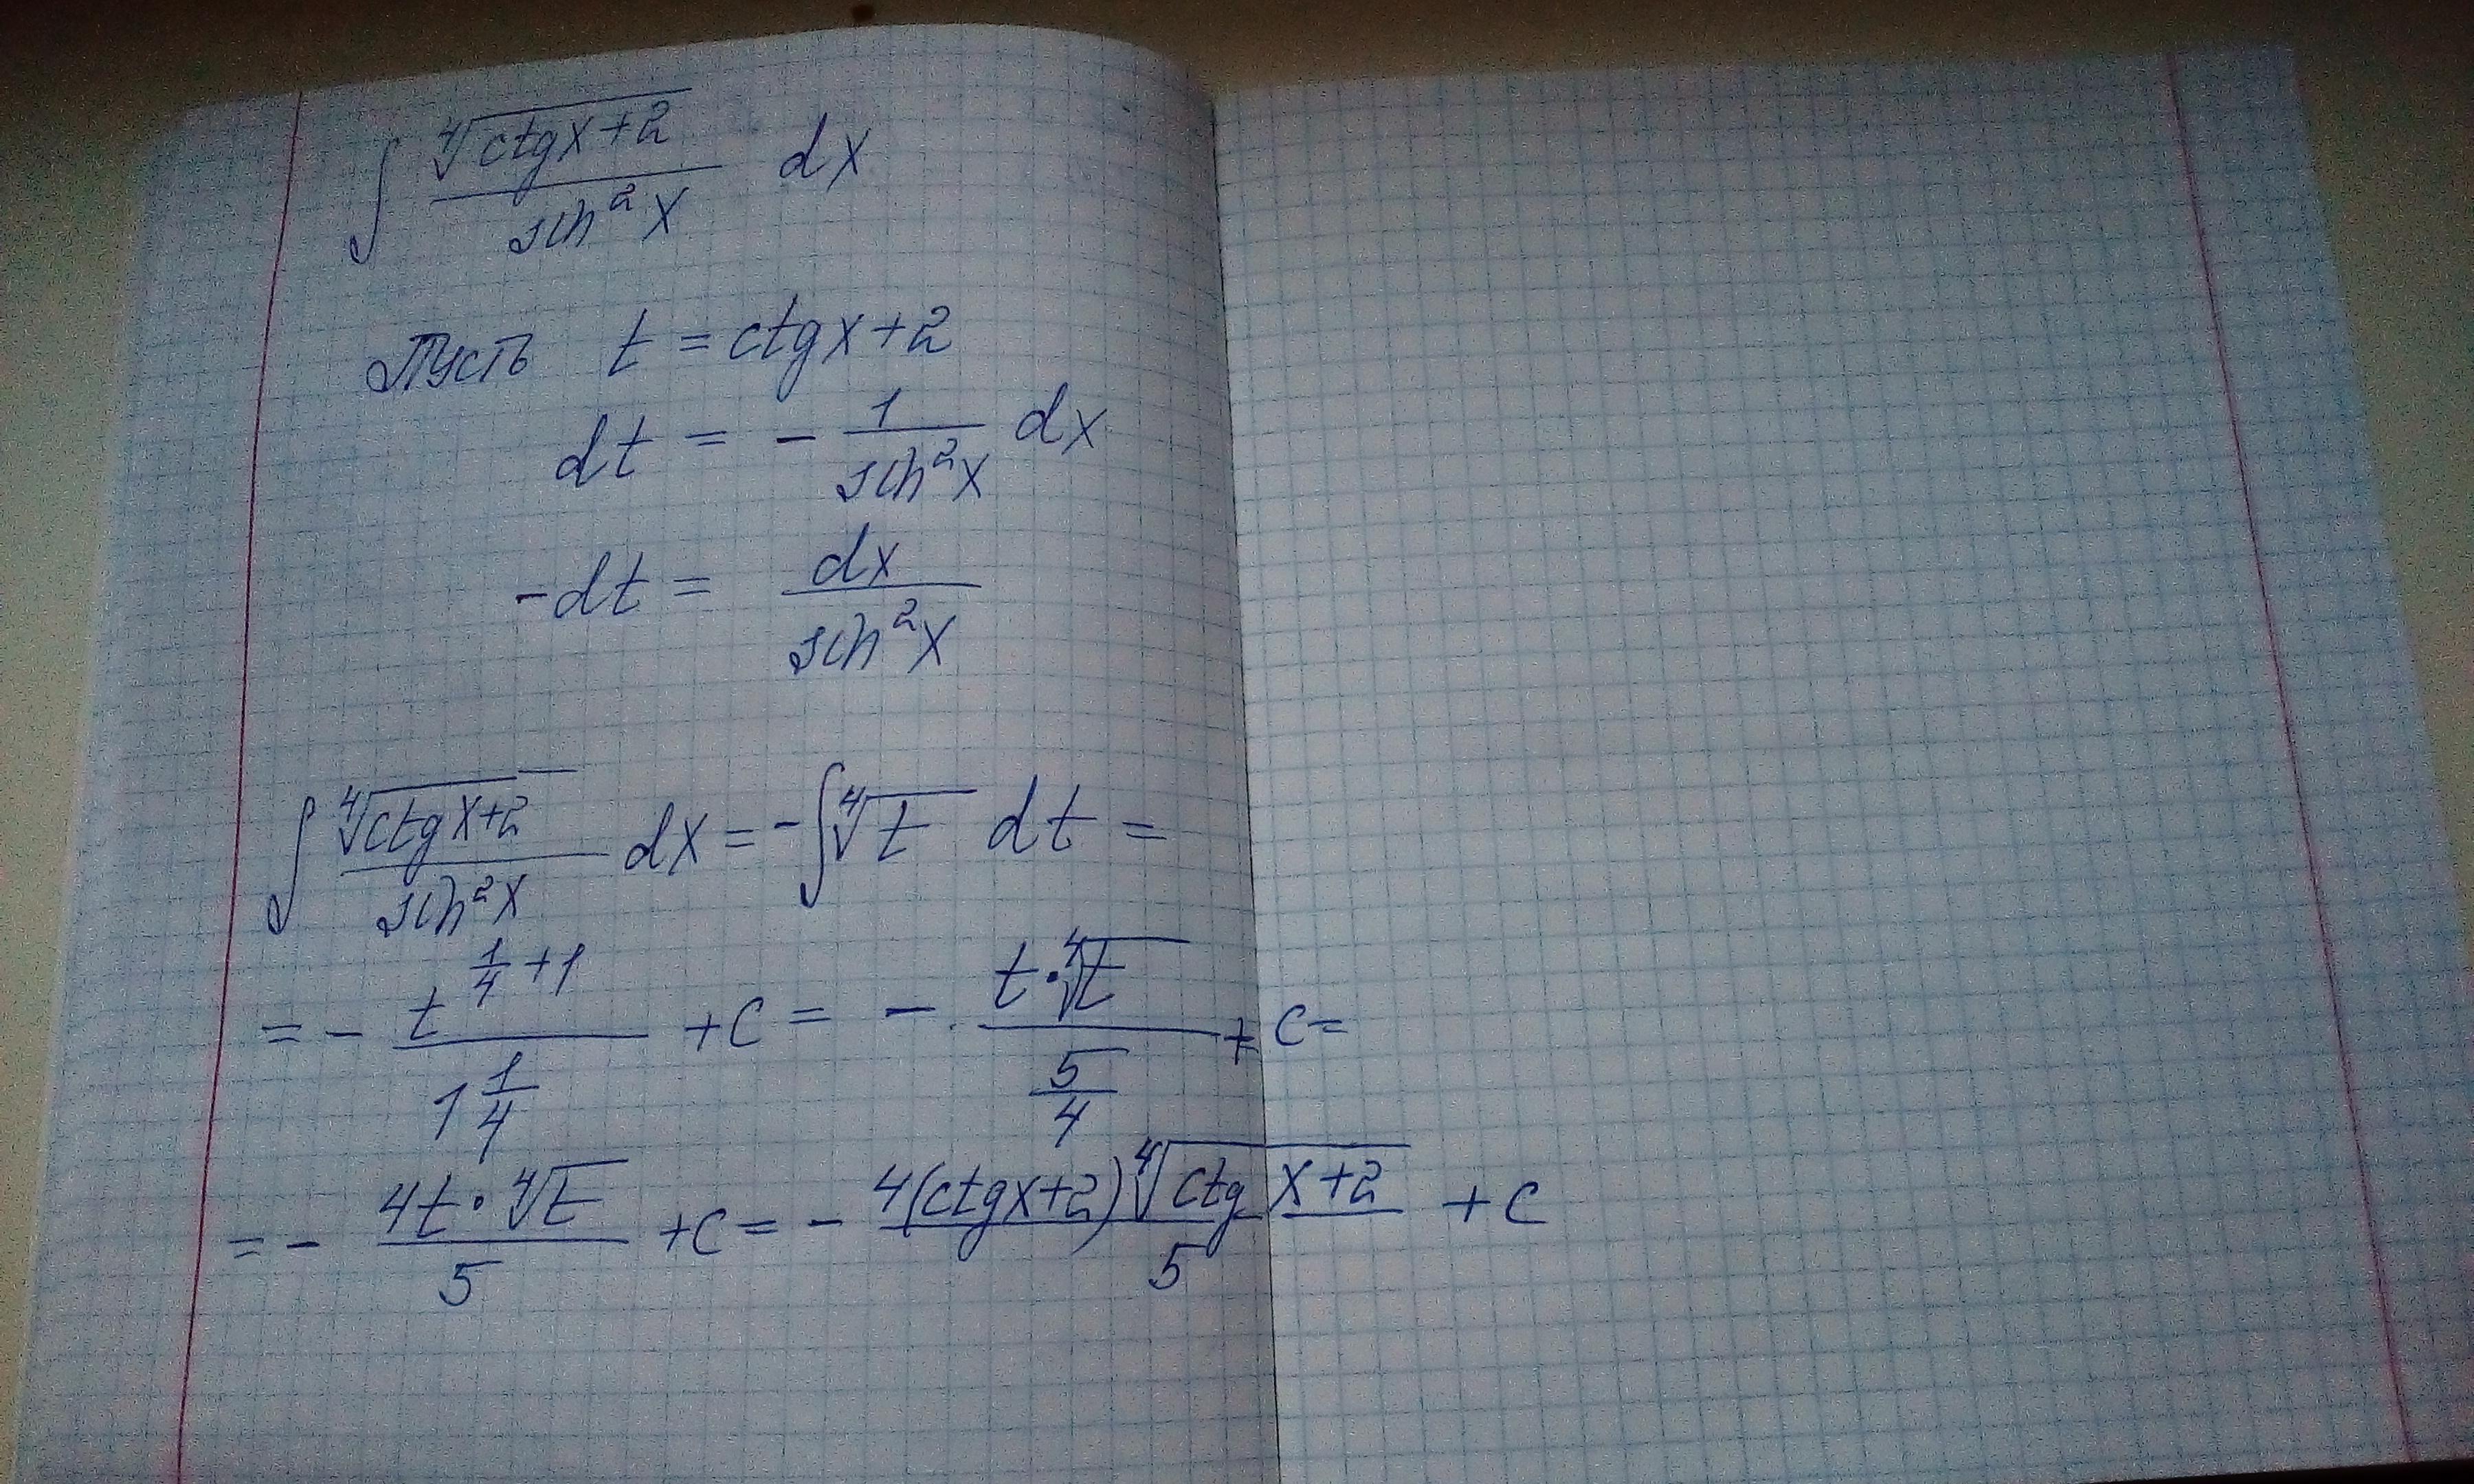 ∫ ⁴√(ctgx+2) / sin²x dx
Пусть t = ctgx+2
dt = - 1/sin²x dx
-dt = dx/sin²x
∫ ⁴√(ctgx+2) / sin²x dx = -∫ ⁴√t dt =
= - t^(1/4+1) / 1 1/4 + c = - t·⁴√t / (5/4) + c =
= - 4t·⁴√t / 5 + c = - 4(ctgx+2)⁴√(ctgx+2) / 5 + c